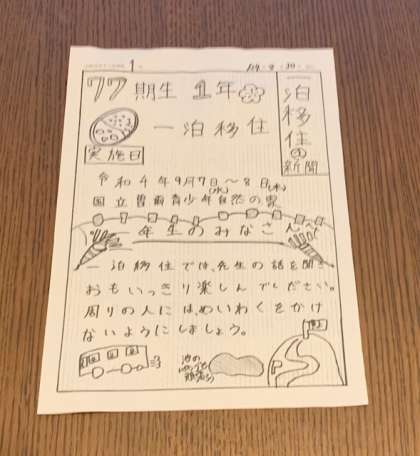 1
77期生 1年
泊移住の新聞
一泊移住
実施日
令和4年9月7日(水)~8日(木)
国立曽爾青少年自然の家
一年生のみなさんへ
一泊移住では、先生の話を聞き
おもいっきり楽しんでください。
周りの人には、めいわくをかけ
ないようにしましょう。
池の